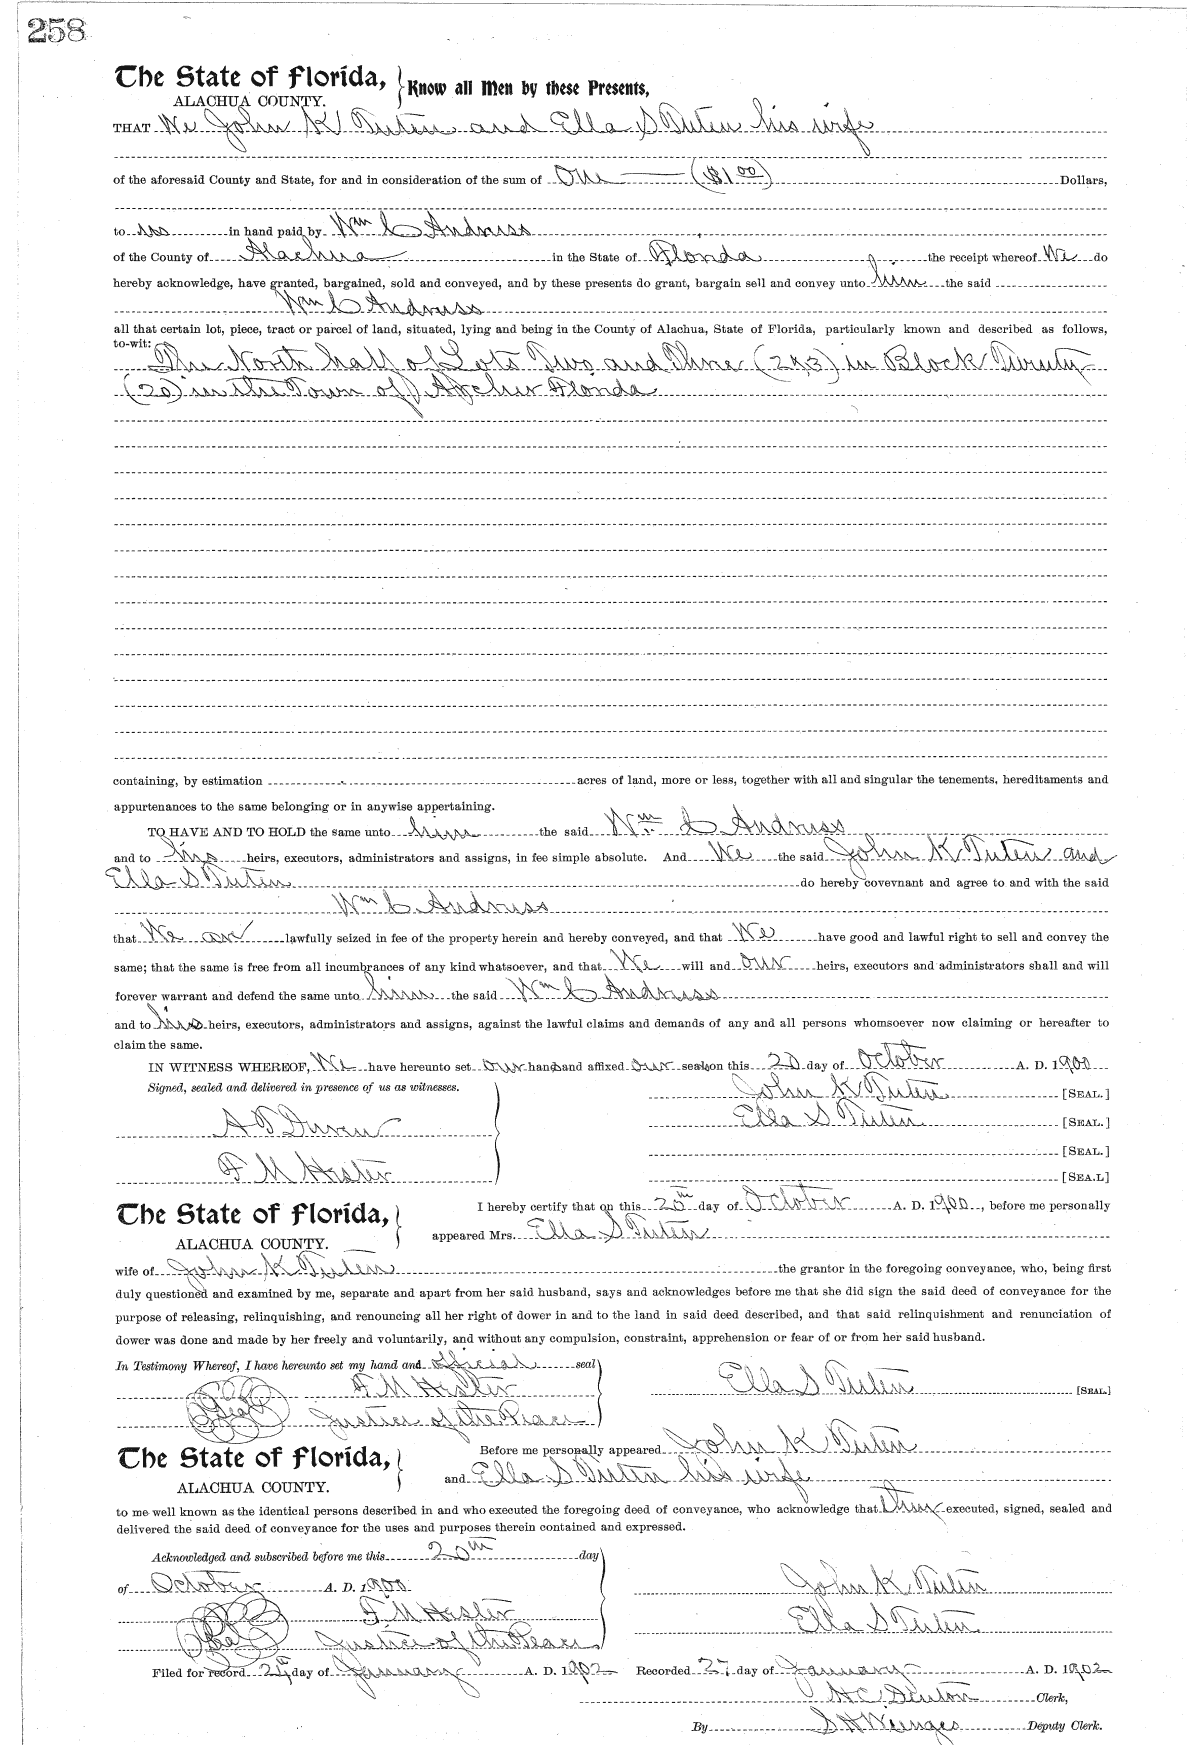 258
The State of Florida, Know all Men by these Presents,
ALACHUA COUNTY.
THAT We John K Tuten and Ella S Tuten his wife
of the aforesaid County and State, for and in consideration of the sum of One ($1.00) Dollars,
to us in hand paid by Wm C Andruss
of the County of Alachua in the State of Florida the receipt whereof We do
hereby acknowledge, have granted, bargained, sold and conveyed, and by these presents do grant, bargain sell and convey unto him the said
Wm C Andruss
all that certain lot, piece, tract or parcel of land, situated, lying and being in the County of Alachua, State of Florida, particularly known and described as follows,
to-wit:
The North half of Lots Two and Three (2&3) in Block Twenty
(20) in the Town of Archer Florida
containing, by estimation acres of land, more or less, together with all and singular the tenements, hereditaments and
appurtenances to the same belonging or in anywise appertaining.
TO HAVE AND TO HOLD the same unto him the said Wm C Andruss
and to his heirs, executors, administrators and assigns, in fee simple absolute. And We the said John K Tuten and
Ella S Tuten do hereby covevnant and agree to and with the said
Wm C Andruss
that We are lawfully seized in fee of the property herein and hereby conveyed, and that We have good and lawful right to sell and convey the
same; that the same is free from all incumbrances of any kind whatsoever, and that We will and our heirs, executors and administrators shall and will
forever warrant and defend the same unto him the said Wm C Andruss
and to his heirs, executors, administrators and assigns, against the lawful claims and demands of any and all persons whomsoever now claiming or hereafter to
claim the same.
IN WITNESS WHEREOF, We have hereunto set our hands and affixed our seals on this 20 day of October A. D. 1900
Signed, sealed and delivered in presence of us as witnesses. John K Tuten [SEAL.]
Ella S Tuten [SEAL.]
A D
[SEAL.]
F M Hester [SEA.L]
The State of Florida, I hereby certify that on this 20th day of October A. D. 1900, before me personally
ALACHUA COUNTY. appeared Mrs. Ella S Tuten
wife of John K Tuten the grantor in the foregoing conveyance, who, being first
duly questioned and examined by me, separate and apart from her said husband, says and acknowledges before me that she did sign the said deed of conveyance for the
purpose of releasing, relinquishing, and renouncing all her right of dower in and to the land in said deed described, and that said relinquishment and renunciation of
dower was done and made by her freely and voluntarily, and without any compulsion, constraint, apprehension or fear of or from her said husband.
In Testimony Whereof, I have hereunto set my hand and official seal
F M Hester Ella S Tuten [SEAL.]
Seal Justice of the Peace
The State of Florida, Before me personally appeared John K Tuten
ALACHUA COUNTY. and Ella S Tuten his wife
to me well known as the identical persons described in and who executed the foregoing deed of conveyance, who acknowledge that they executed, signed, sealed and
delivered the said deed of conveyance for the uses and purposes therein contained and expressed.
Acknowledged and subscribed before me this 20th day
of October A. D. 1900 John K Tuten
F M Hester Ella S Tuten
Seal Justice of the Peace
Filed for record 24th day of January A. D. 1902 Recorded 27 day of January A. D. 1902
H C Denton Clerk,
By S H Wienges Deputy Clerk.